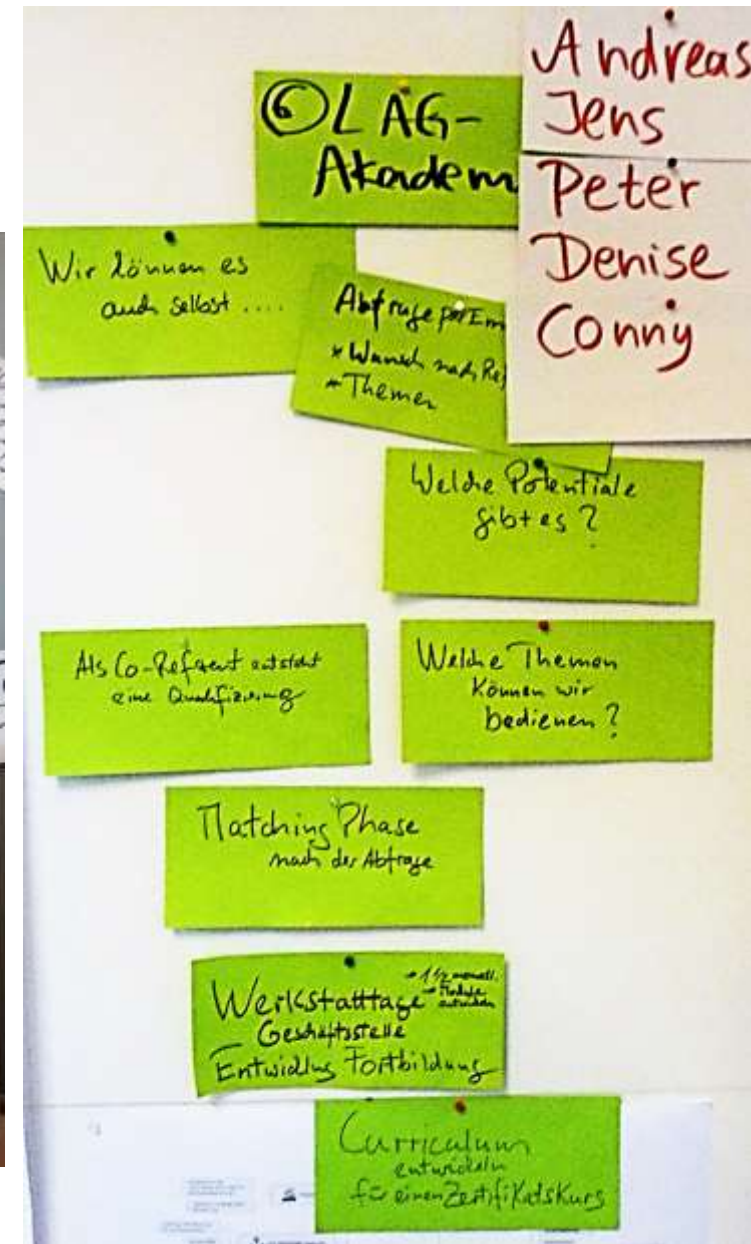 ⑥ LAG-
Akadem
Andreas
Jens
Peter
Denise
Conny
Wir können es
auch selbst ....
Abfrage per Em
* Wunsch nach Ref
* Themen
Welche Potentiale
gibt es?
Als Co-Referent entsteht
eine Qualifizierung
Welche Themen
können wir
bedienen?
Matching Phase
nach der Abfrage
Werkstatttage
→ 1 1/2 monatl.
→ Module
entwickeln
Geschäftsstelle
Entwicklung Fortbildung
Curriculum
entwickeln
für einen Zertifikatskurs